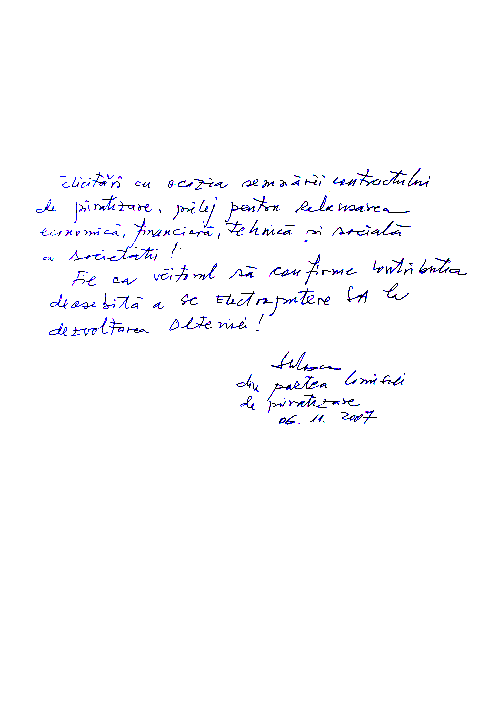 Felicitări cu ocazia semnării contractului
de privatizare, prilej pentru relansarea
economică, financiară, tehnică și socială
a societății!
Fie ca viitorul să confirme contribuția
deosebită a SC Electroputere SA la
dezvoltarea Olteniei!
din partea Comisiei
de privatizare
06. 11. 2007